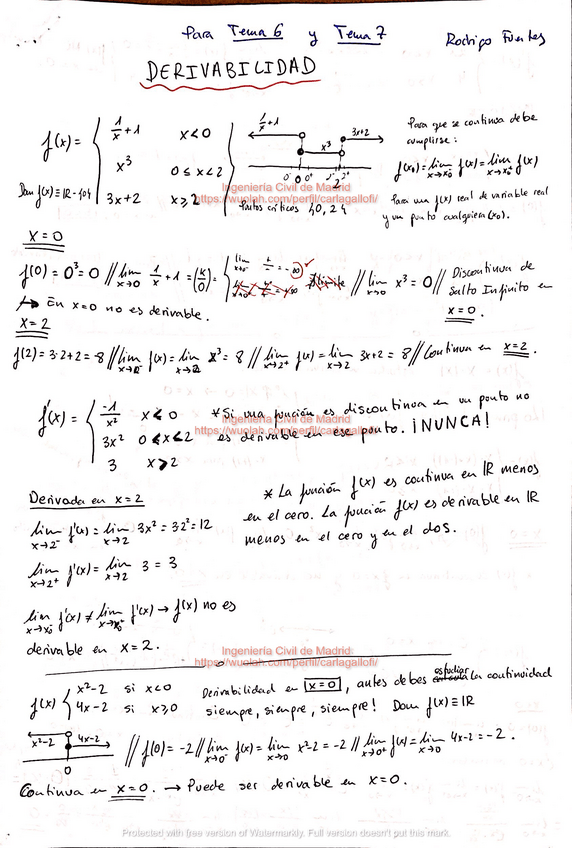 Para Tema 6 y Tema 7
Rodrigo Fuentes
DERIVABILIDAD
f(x) = { 1/x + 1 x<0
x³ 0 ≤ x < 2
3x + 2 x ≥ 2
Dom f(x) ≡ IR - {0}
1/x + 1 x³ 3x+2
0⁻ 0⁺ 2⁻ 2⁺
0 2
Puntos críticos {0, 2}
Para que sea continua debe
cumplirse:
f(x₀) = lim x→x₀⁻ f(x) = lim x→x₀⁺ f(x)
Para una f(x) real de variable real
y un punto cualquiera (x₀).
Ingeniería Civil de Madrid
https://wuolah.com/perfil/carlagallofi/
x = 0
f(0) = 0³ = 0 // lim x→0 1/x + 1 = (k/0) = { lim x→0⁻ = -∞ // lim x→0 x³ = 0 // Discontinua de
Salto Infinito en
x = 0.
→ En x=0 no es derivable.
x = 2
f(2) = 3·2+2 = 8 // lim x→2⁻ f(x) = lim x→2 x³ = 8 // lim x→2⁺ f(x) = lim x→2 3x+2 = 8 // Continua en x=2.
f'(x) = { -1/x² x < 0
3x² 0 < x < 2
3 x > 2
* Si una función es discontinua en un punto no
es derivable en ese punto. ¡NUNCA!
Ingeniería Civil de Madrid
https://wuolah.com/perfil/carlagallofi/
Derivada en x = 2
lim x→2⁻ f'(x) = lim x→2 3x² = 3·2² = 12
lim x→2⁺ f'(x) = lim x→2 3 = 3
lim x→x₀⁻ f'(x) ≠ lim x→x₀⁺ f'(x) → f(x) no es
derivable en x = 2.
* La función f(x) es continua en IR menos
en el cero. La función f(x) es derivable en IR
menos en el cero y en el dos.
Ingeniería Civil de Madrid
https://wuolah.com/perfil/carlagallofi/
f(x) { x²-2 si x<0
4x-2 si x≥0
Derivabilidad en x=0, antes debes estudiar la continuidad
siempre, siempre, siempre! Dom f(x) ≡ IR
x²-2 4x-2
0
// f(0) = -2 // lim x→0⁻ f(x) = lim x→0 x²-2 = -2 // lim x→0⁺ f(x) = lim x→0 4x-2 = -2.
Continua en x=0. → Puede ser derivable en x=0.
Protected with free version of Watermarkly. Full version doesn't put this mark.